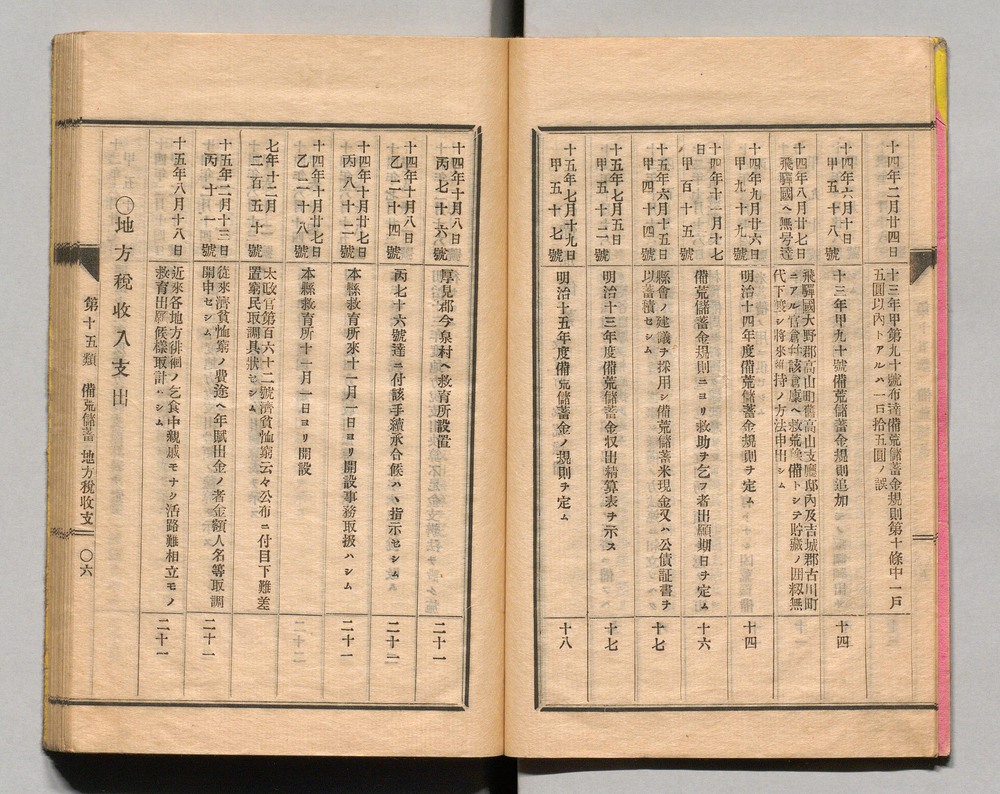 十四年二月廿四日
十三年甲第九十號布達備荒儲蓄金規則第十條中一戸
五圓以內トアルハ一口拾五圓ノ誤
十四年六月十日
甲五十八號
十三年甲九十號備荒儲蓄金規則追加
十四
十四年八月廿七日
飛驒國ヘ無号達
飛驒國大野郡高山町舊高山支廳邸內及吉城郡古川町
ニアル官倉幷該倉稟ヘ救荒豫備トシテ貯藏ノ囲籾無
代下渡シ將來維持ノ方法申出シム
十四年九月廿六日
甲九十九號
明治十四年度備荒儲蓄金規則ヲ定ム
十四
十四年十一月十七
日
甲百十五號
備荒儲蓄金規則ニヨリ救助ヲ乞フ者出願期日ヲ定ム
十六
十五年六月十五日
甲四十四號
縣會ノ建議ヲ採用シ備荒儲蓄米現金又ハ公債証書ヲ
以蓄積セシム
十七
十五年七月五日
甲五十二號
明治十三年度備荒儲蓄金収出精算表ヲ示ス
十七
十五年七月十九日
甲五十七號
明治十五年度備荒儲蓄金ノ規則ヲ定ム
十八
十四年十月八日
丙七十六號
厚見郡今泉村ヘ救育所設置
二十一
十四年十月八日
乙二十四號
丙七十六號達ニ付該手續承合候ハヽ指示セシム
二十一
十四年十月廿七日
丙八十二號
本縣救育所來十一月一日ヨリ開設事務取扱ハシム
二十一
十四年十月廿七日
乙二十八號
本縣救育所十一月一日ヨリ開設
二十二
七年十二月
二百五十號
太政官第百六十二號濟貧恤窮云々公布ニ付目下難差
置窮民取調具狀セシム
十五年二月十三日
丙十一號
從來濟貧恤窮ノ費途ヘ年賦出金ノ者金額人名等取調
開申セシム
二十一
十五年八月十八日
近來各地方徘徊ノ乞食中親戚モナシ活路難相立モノ
救育出願候樣取計ハシム
二十一
〇地方稅收入支出
第十五類 備荒儲蓄 地方稅收支 〇六